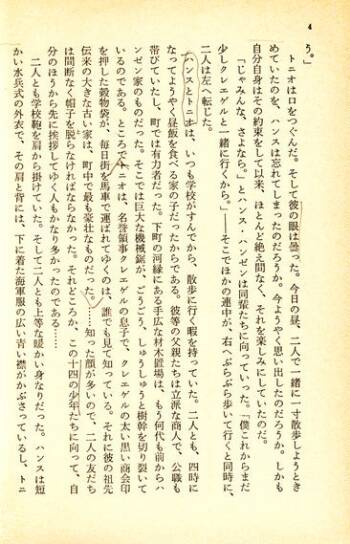 4
う。」
トニオは口をつぐんだ。そして彼の眼は曇った。今日の昼、二人で一緒に一寸散歩しようときめていたのを、ハンスは忘れてしまったのだろうか。今ようやく思い出したのだろうか。しかも
自分自身はその約束をして以来、ほとんど絶え間なく、それを楽しみにしていたのだ。
「じゃみんな、さよなら。」とハンス・ハンゼンは同輩たちに向っていった。「僕これからまだ
少しクレエゲルと一緒に行くから。」――そこでほかの連中が、右へぶらぶら歩いて行くと同時に、
二人は左へ転じた。
ハンスとトニオは、いつも学校がすんでから、散歩に行く暇を持っていた。二人とも、四時に
なってようやく昼飯を食べる家の子だったからである。彼等の父親たちは立派な商人で、公職も
帯びていたし、町では有力者だった。下町の河緑にある手広な材木置場は、もう何代も前からハ
ンゼン家のものだった。そこでは巨大な機械鋸が、ごうごう、しゅうしゅうと樹幹を切り裂いて
いるのである。ところでトニオは、名誉領事クレエゲルの息子で、クレエゲルの太い黒い商会印
を押した穀物袋が、毎日街を馬車で運ばれてゆくのは、誰でも見て知っている。それに彼の祖先
伝来の大きな古い家は、町中で最も豪壮なものだった。……知った顔が多いので、二人の友だち
は間断なく帽子を脱らなければならなかった。それどころか、この十四の少年たちに向って、自
分のほうから先に挨拶してゆく人もかなり多かったのである……
二人とも学校鞄を肩から掛けていた。そして二人とも上等な暖かい身なりだった。ハンスは短
かい水兵式の外衣で、その肩と背には、下に着た海軍服の広い青い襟がかぶさっているし、トニ